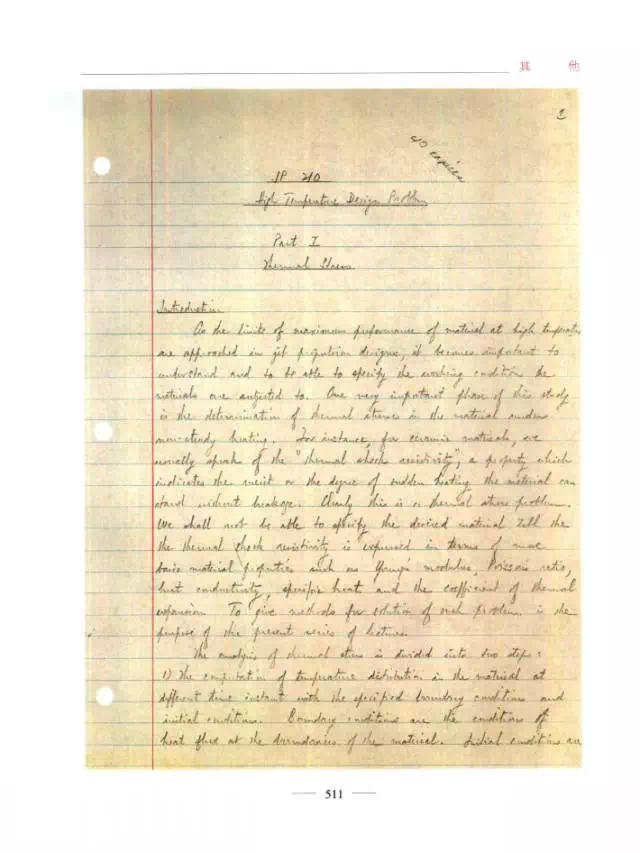 其 他
2
40 copies
JP 210
High Temperature Design Problem
Part I
Thermal Stress
Introduction
As the limits of maximum performance of material at high temperature
are approached in jet propulsion designs, it becomes important to
understand and to be able to specify the working condition the
materials are subjected to. One very important phase of this study
is the determination of thermal stress in the material under
non-steady heating. For instance, for ceramic materials, we
usually speak of the "thermal shock resistivity", a property which
indicates the merit or the degree of sudden heating the material can
stand without breakage. Clearly this is a thermal stress problem.
We shall not be able to specify the desired material till the
the thermal shock resistivity is expressed in terms of more
basic material properties such as Young's modulus, Poisson's ratio,
heat conductivity, specific heat, and the coefficient of thermal
expansion. To give methods for solution of such problem is the
purpose of the present series of lectures.
The analysis of thermal stress is divided into two steps:
1) The computation of temperature distribution in the material at
different time instant with the specified boundary conditions and
initial conditions. Boundary conditions are the conditions of
heat flux at the boundaries of the material. Initial conditions are
511